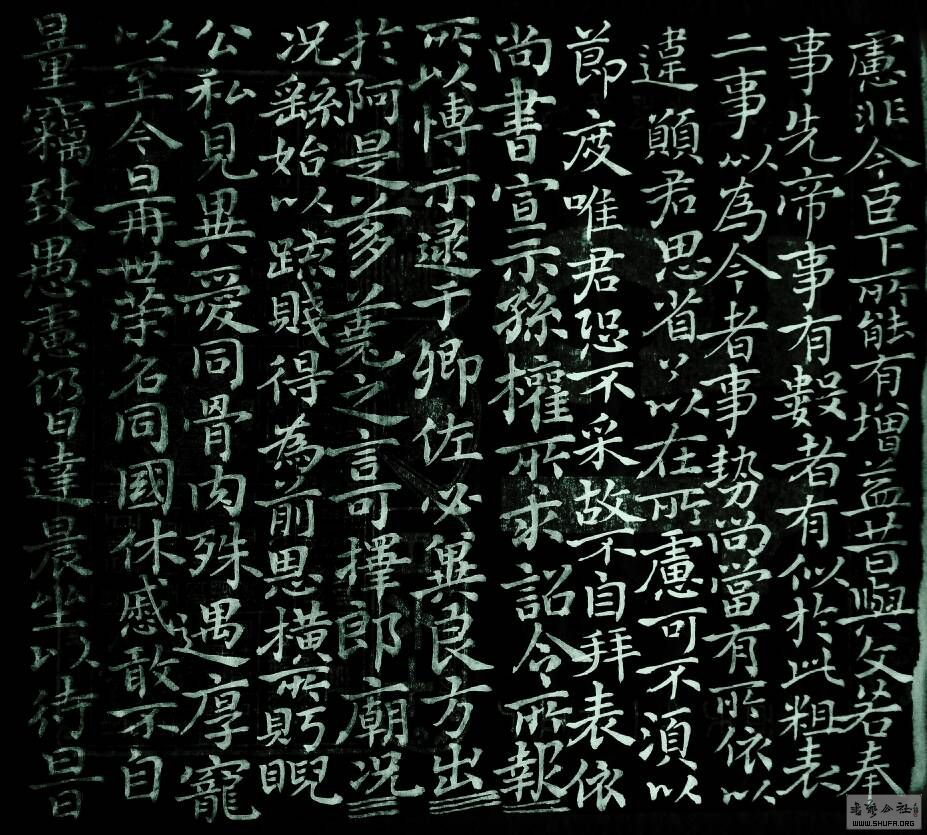 慮非今臣下所能有增益昔與文若奉
事先帝事有數者有似於此粗表
二事以為今者事勢尚當有所依以
違願君思省若以在所慮可不須以
節度唯君恐不采故不自拜表依
尚書宣示孫權所求詔令所報
所以博示逮于卿佐必冀良方出
於阿是芻蕘之言可擇郎廟況
況繇始以疏賤得為前恩橫所盱睨
公私見異愛同骨肉殊遇厚寵
以至今日再世榮名同國休慼敢不自
量竊致愚慮仍日達晨坐以待旦
書藝公社
WWW.SHUFA.ORG